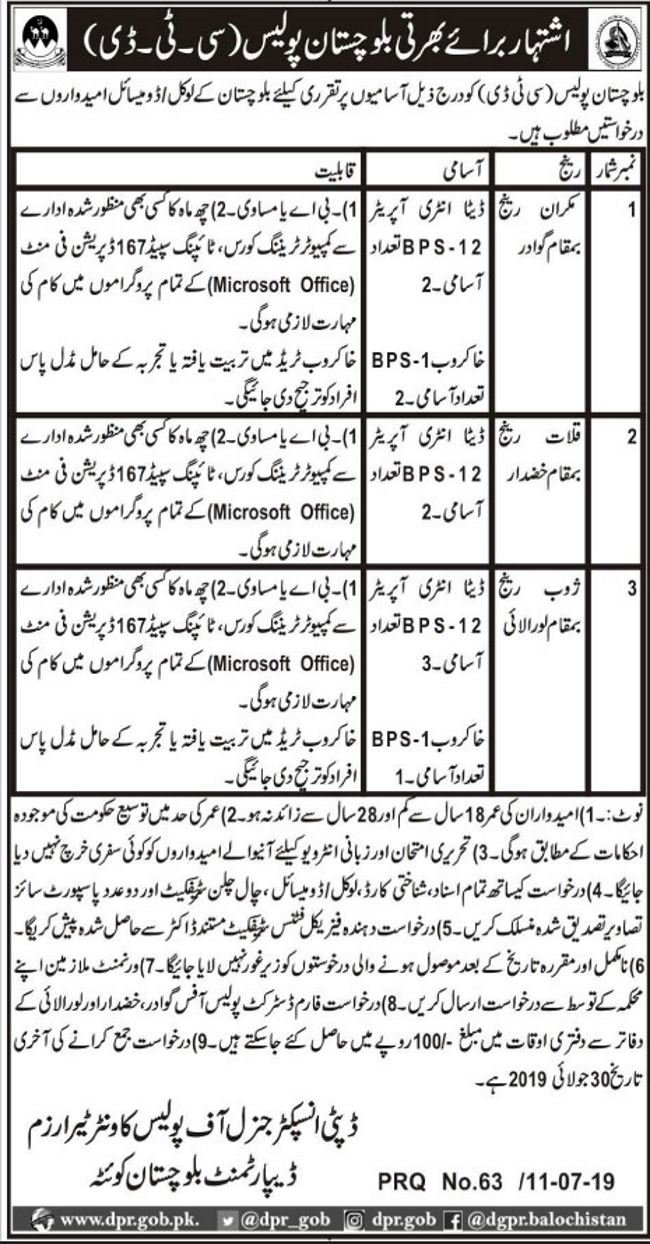 اشتہار برائے بھرتی بلوچستان پولیس (سی۔ٹی۔ڈی)
بلوچستان پولیس (سی ٹی ڈی) کو درج ذیل آسامیوں پر تقرری کیلئے بلوچستان کے لوکل/ڈومیسائل امیدواروں سے
درخواستیں مطلوب ہیں۔
نمبر شمار رینج آسامی قابلیت
1 مکران رینج ڈیٹا انٹری آپریٹر 1)۔بی اے یا مساوی۔2) چھ ماہ کا کسی بھی منظور شدہ ادارے
بمقام گوادر BPS-12 تعداد سے کمپیوٹر ٹریننگ کورس، ٹائپنگ سپیڈ 167 ڈپریشن فی منٹ
آسامی۔2 (Microsoft Office) کے تمام پروگراموں میں کام کی
مہارت لازمی ہوگی۔
خاکروب BPS-1 خاکروب ٹریڈ میں تربیت یافتہ یا تجربہ کے حامل مڈل پاس
تعداد آسامی۔2 افراد کو ترجیح دی جائیگی۔
2 قلات رینج ڈیٹا انٹری آپریٹر 1)۔بی اے یا مساوی۔2) چھ ماہ کا کسی بھی منظور شدہ ادارے
بمقام خضدار BPS-12 تعداد سے کمپیوٹر ٹریننگ کورس، ٹائپنگ سپیڈ 167 ڈپریشن فی منٹ
آسامی۔2 (Microsoft Office) کے تمام پروگراموں میں کام کی
مہارت لازمی ہوگی۔
3 ژوب رینج ڈیٹا انٹری آپریٹر 1)۔بی اے یا مساوی۔2) چھ ماہ کا کسی بھی منظور شدہ ادارے
بمقام لورالائی BPS-12 تعداد سے کمپیوٹر ٹریننگ کورس، ٹائپنگ سپیڈ 167 ڈپریشن فی منٹ
آسامی۔3 (Microsoft Office) کے تمام پروگراموں میں کام کی
مہارت لازمی ہوگی۔
خاکروب BPS-1 خاکروب ٹریڈ میں تربیت یافتہ یا تجربہ کے حامل مڈل پاس
تعداد آسامی۔1 افراد کو ترجیح دی جائیگی۔
نوٹ:۔1) امیدواران کی عمر 18 سال سے کم اور 28 سال سے زائد نہ ہو۔2) عمر کی حد میں توسیع حکومت کی موجودہ
احکامات کے مطابق ہوگی۔3) تحریری امتحان اور زبانی انٹرویو کیلئے آنیوالے امیدواروں کو کوئی سفری خرچ نہیں دیا
جائیگا۔4) درخواست کیساتھ تمام اسناد، شناختی کارڈ، لوکل/ڈومیسائل، چال چلن سرٹیفکیٹ اور دو عدد پاسپورٹ سائز
تصاویر تصدیق شدہ منسلک کریں۔5) درخواست دہندہ فیزیکل فٹنس سرٹیفکیٹ مستند ڈاکٹر سے حاصل شدہ پیش کریگا۔
6) نامکمل اور مقررہ تاریخ کے بعد موصول ہونے والی درخوستوں کو زیر غور نہیں لایا جائیگا۔7) ورنمنٹ ملازمین اپنے
محکمہ کے توسط سے درخواست ارسال کریں۔8) درخواست فارم ڈسٹرکٹ پولیس آفس گوادر، خضدار اور لورالائی کے
دفاتر سے دفتری اوقات میں مبلغ -/100 روپے میں حاصل کئے جاسکتے ہیں۔9) درخواست جمع کرانے کی آخری
تاریخ 30 جولائی 2019 ہے۔
ڈپٹی انسپکٹر جنرل آف پولیس کاونٹر ٹیرارزم
ڈیپارٹمنٹ بلوچستان کوئٹہ
PRQ No.63 /11-07-19
www.dpr.gob.pk. @dpr_gob dpr.gob @dgpr.balochistan